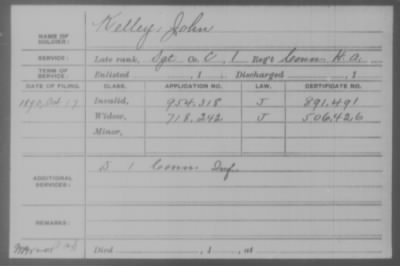 NAME OF SOLDIER: Kelley, John
SERVICE: Late rank, Sgt Co. C, 1 Reg't Conn H.A.
TERM OF SERVICE: Enlisted , 1 . Discharged , 1
DATE OF FILING. CLASS. APPLICATION NO. LAW. CERTIFICATE NO.
1890, Oct 17 Invalid, 954.318 J 891.491
Widow, 718.242 J 506.426
Minor,
ADDITIONAL SERVICES: D 1 Conn Inf.
REMARKS:
Died , 1 , at